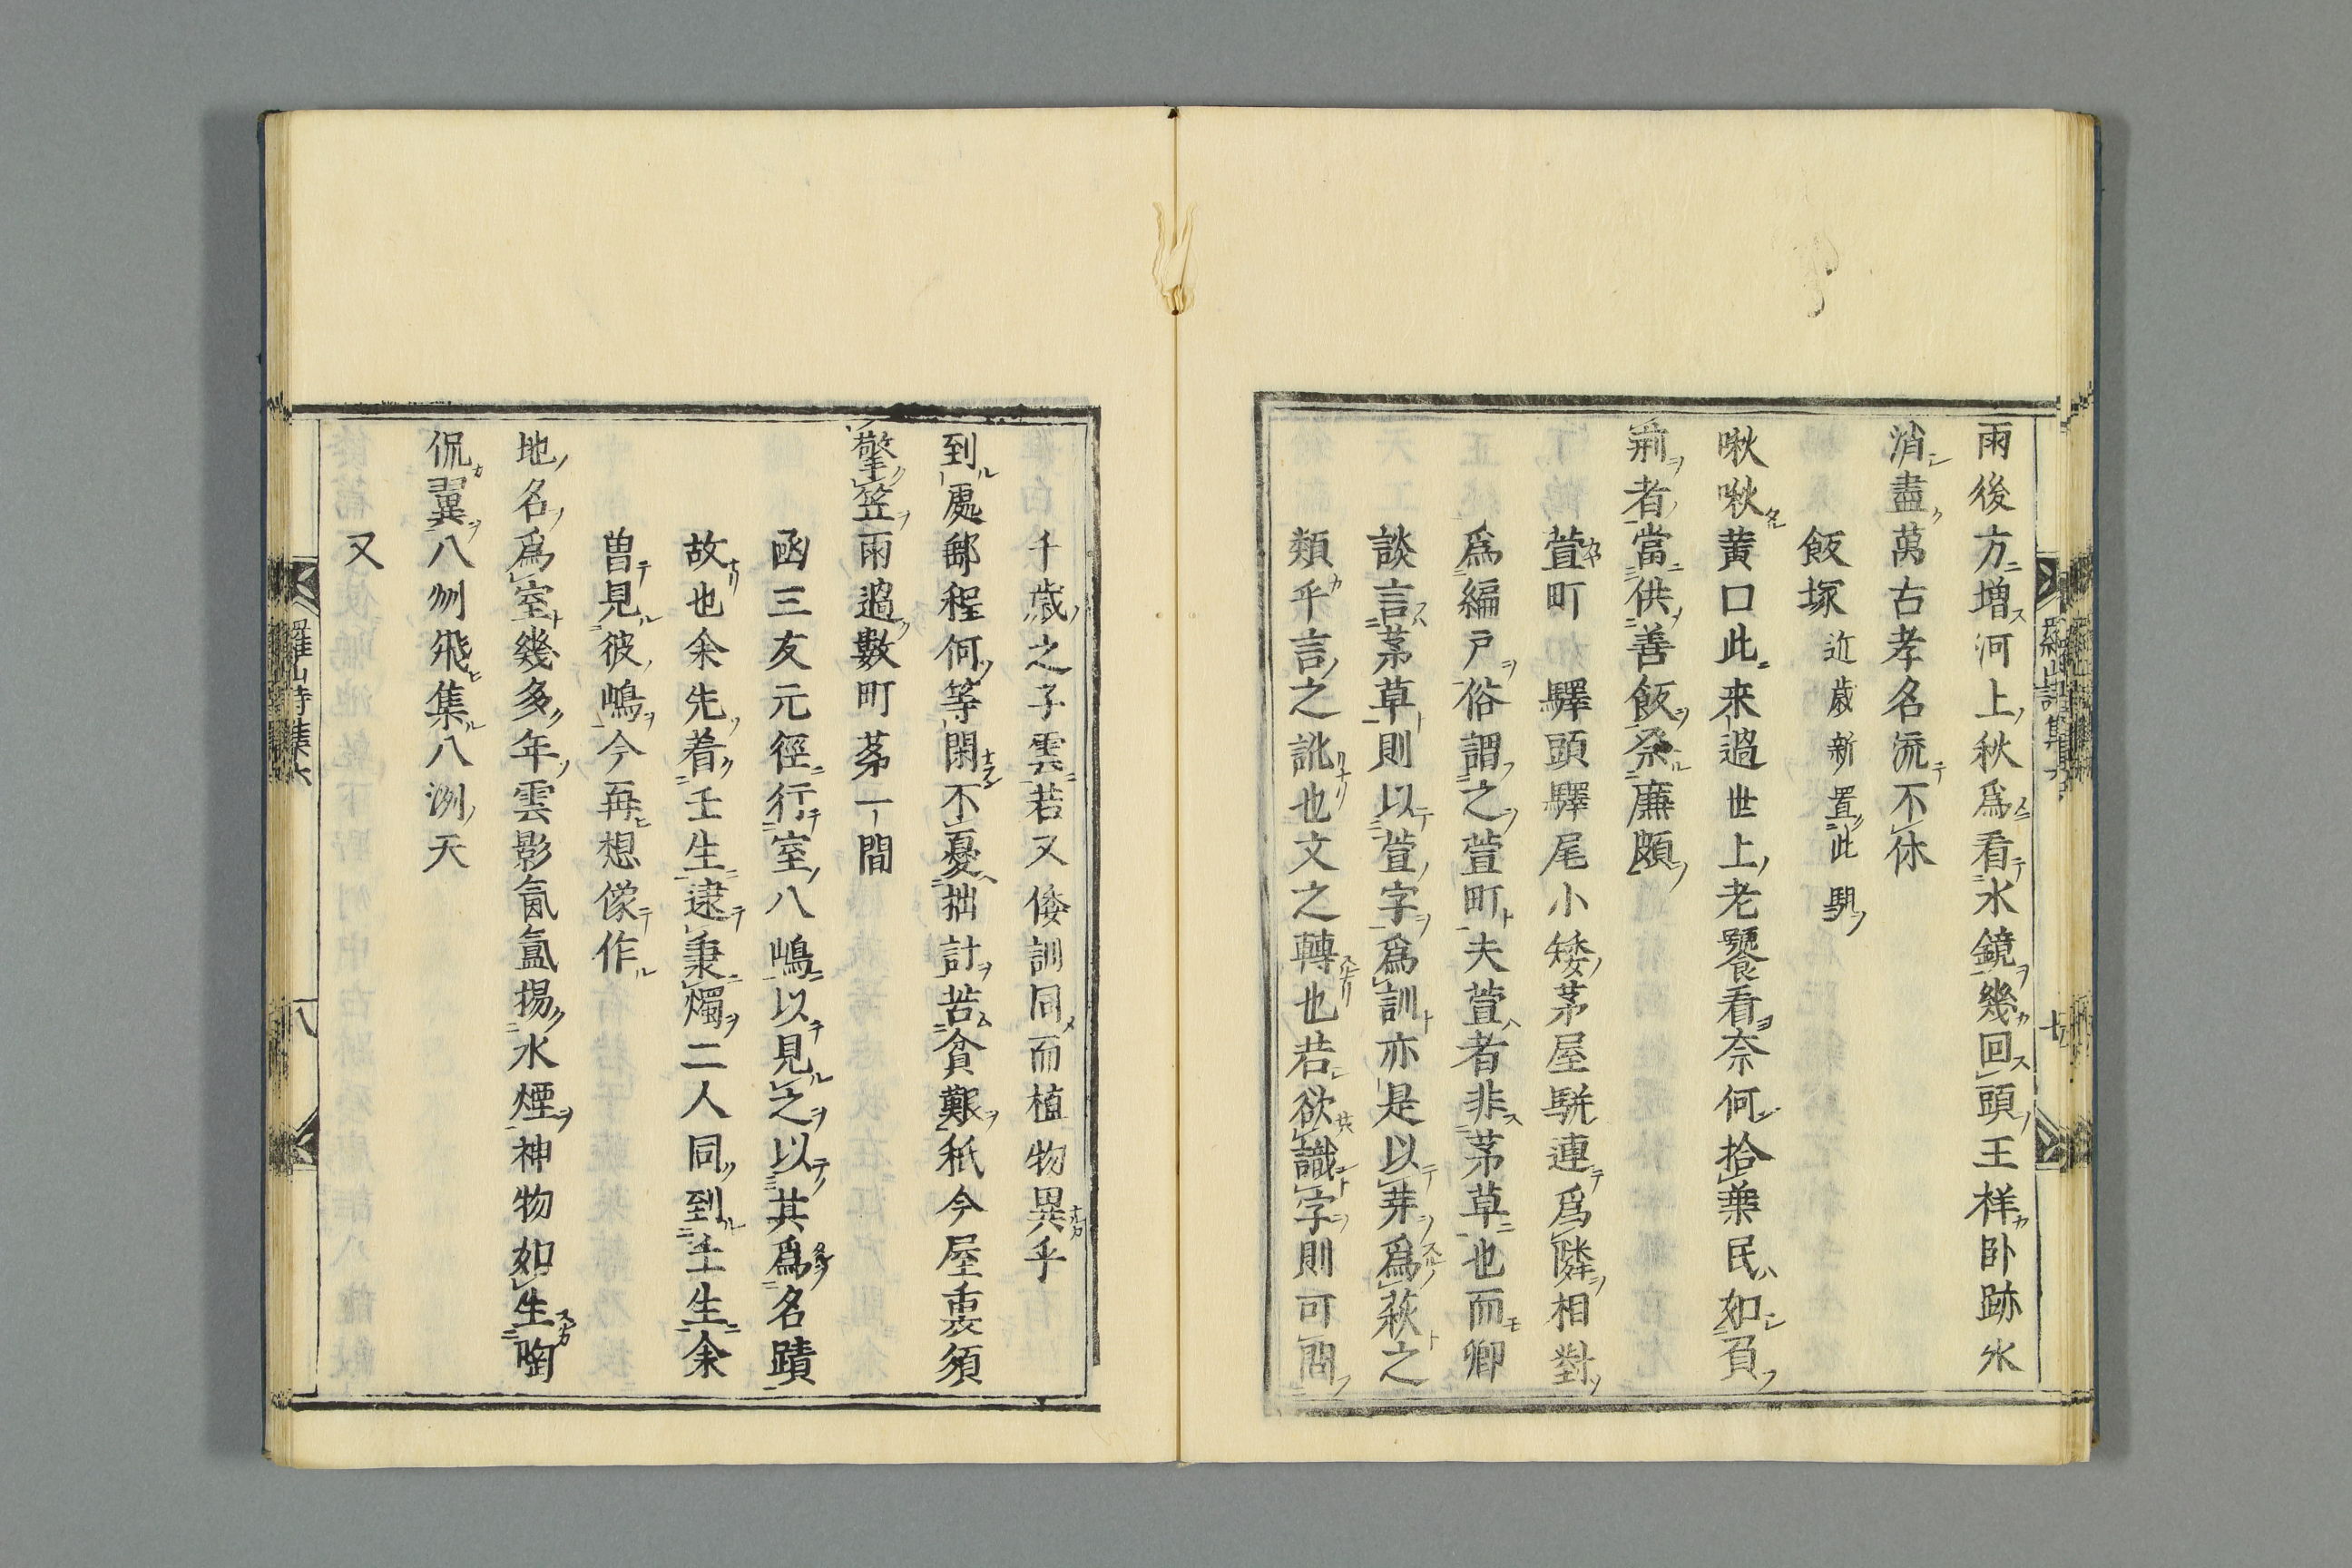 雨後方增河上秋爲看水鏡幾回頭王祥臥跡氷
消盡萬古孝名流不休
飯塚近歲新置此馹
啾啾黃口此來過世上老饕看奈何拾菓民如負
荊者當供善飯祭廉頗
萱町驛頭驛尾小矮茅屋駢連爲隣相對
爲編戸俗謂之萱町夫萱者非茅草也而鄕
談言茅草則以萱字爲訓亦是以芽爲萩之
類乎言之訛也文之轉也若欲識字則可問
千歲之子雲若又倭訓同而植物異乎
到處郵程何等閑不憂拙計苦貧艱秖今屋裏須
擎笠雨過數町茅一間
函三友元徑行室八嶋以見之以其爲名蹟
故也余先着壬生逮秉燭二人同到壬生余
曽見彼嶋今再想像作
地名爲室幾多年雲影氤氳揚水煙神物如生陶
侃翼八州飛集八洌天
又
羅山詩集六
八
羅山詩集
七